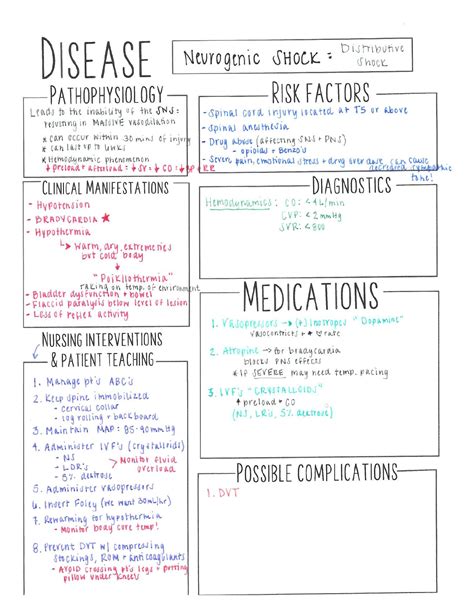 DISEASE
Neurogenic Shock: Distributive Shock
PATHOPHYSIOLOGY
Leads to the inability of the SNS:
resulting in MASSIVE vasodilation
* can occur within 30 mins of injury
* can last up to 6 wks
* Hemodynamic phenomenon
↓preload + afterload: ↓SV: ↓CO: ↓BP
RISK FACTORS
- Spinal cord injury located at T5 or above
- spinal anesthesia
- Drug abuse (affecting SNS + PNS)
- opioids + Benzo's
- Severe pain, emotional stress + drug overdose can cause
decreased sympathetic
tone!
CLINICAL MANIFESTATIONS
- Hypotension
- BRADYCARDIA ★
- Hypothermia
↳ Warm, dry extremeties
but cold body
↓
"Poikilothermia"
taking on temp. of environment
- Bladder dysfunction + bowel
- Flaccid paralysis below level of lesion
- Loss of reflex activity
DIAGNOSTICS
Hemodynamics: CO: <4L/min
CVP: <2mmHg
SVR: <800
MEDICATIONS
1. Vasopressors → (+) inotropes "Dopamine"
vasoconstricts + ♥ rate
2. Atropine → for bradycardia
blocks PNS effects
* If SEVERE may need temp. pacing
3. IVF's "CRYSTALLOIDS"
↑ preload + CO
(NS, LR's, 5% dextrose)
NURSING INTERVENTIONS
& PATIENT TEACHING
1. Manage pt's ABC's
2. Keep spine immobilized
- cervical collar
- log rolling + backboard
3. Maintain MAP: 85-90mmHg
4. Administer IVF's (crystalloids)
- NS
- LDR's
- 5% dextrose
> Monitor fluid
overload
5. Administer vasopressors
6. Insert Foley (we want 30mL/hr)
7. Rewarming for hypothermia
- Monitor body core temp!
8. Prevent DVT w/ compressing
stockings, ROM + anticoagulants
- AVOID crossing pt's legs + putting
pillow under knees
POSSIBLE COMPLICATIONS
1. DVT